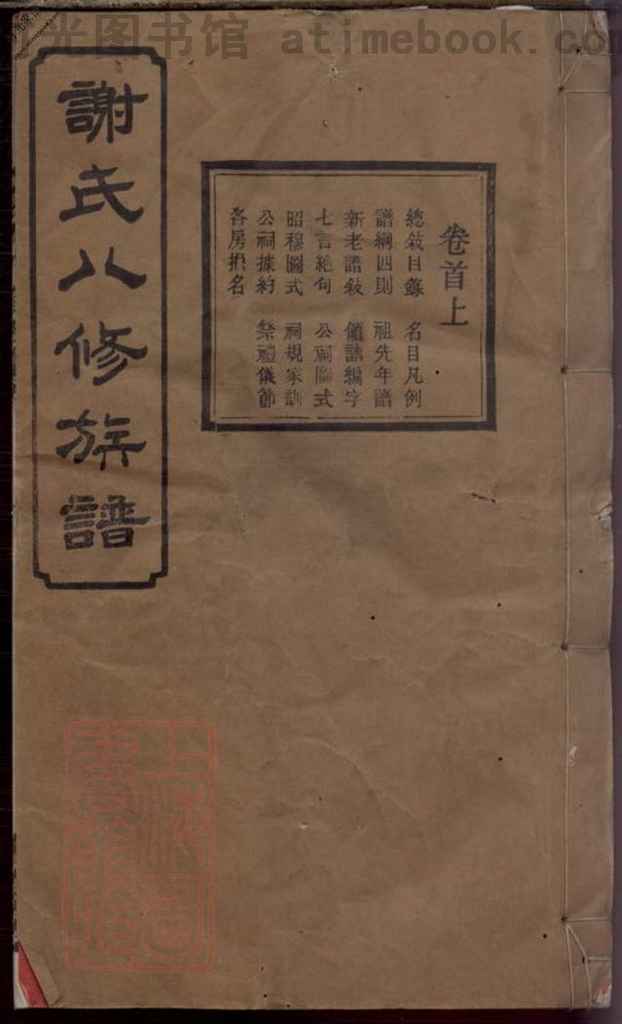 光图书馆 atimebook.co
謝氏八修族譜
卷首上
總敘目錄 名目凡例
譜綱四則 祖先年譜
新老譜敘 領譜編字
七言絕句 公祠圖式
昭穆圖式 祠規家訓
公祠據約 祭禮儀節
各房捐名